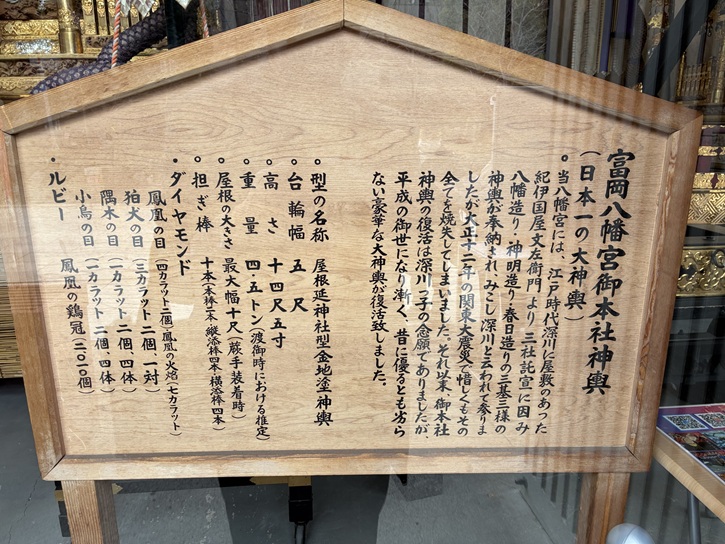 富岡八幡宮御本社神輿
(日本一の大神輿)
◦当八幡宮には、江戸時代深川に屋敷のあった
紀伊国屋文左衛門より、三社託宣に因み
八幡造り・神明造り・春日造りの三基三様の
神輿が奉納され、みこし深川と云われて参りま
したが、大正十二年の関東大震災で惜しくもその
全てを焼失してしまいました。それ以来、御本社
神輿の復活は深川っ子の念願でありましたが、
平成の御世になり漸く、昔に優るとも劣ら
ない豪華な大神輿が復活致しました。
◦型の名称 屋根延神社型金地塗神輿
◦台輪幅 五尺
◦高さ 十四尺五寸
◦重量 四・五トン(渡御時における推定)
◦屋根の大きさ 最大幅十尺(蕨手装着時)
◦担ぎ棒 十本(本棒二本 縦添棒四本 横添棒四本)
・ダイヤモンド
鳳凰の目(四カラット二個)鳳凰の火焔(七カラット)
狛犬の目(三カラット二個、一対)
隅木の目(一カラット二個、四体)
小鳥の目(一カラット二個、四体)
・ルビー 鳳凰の鶏冠(二〇一〇個)